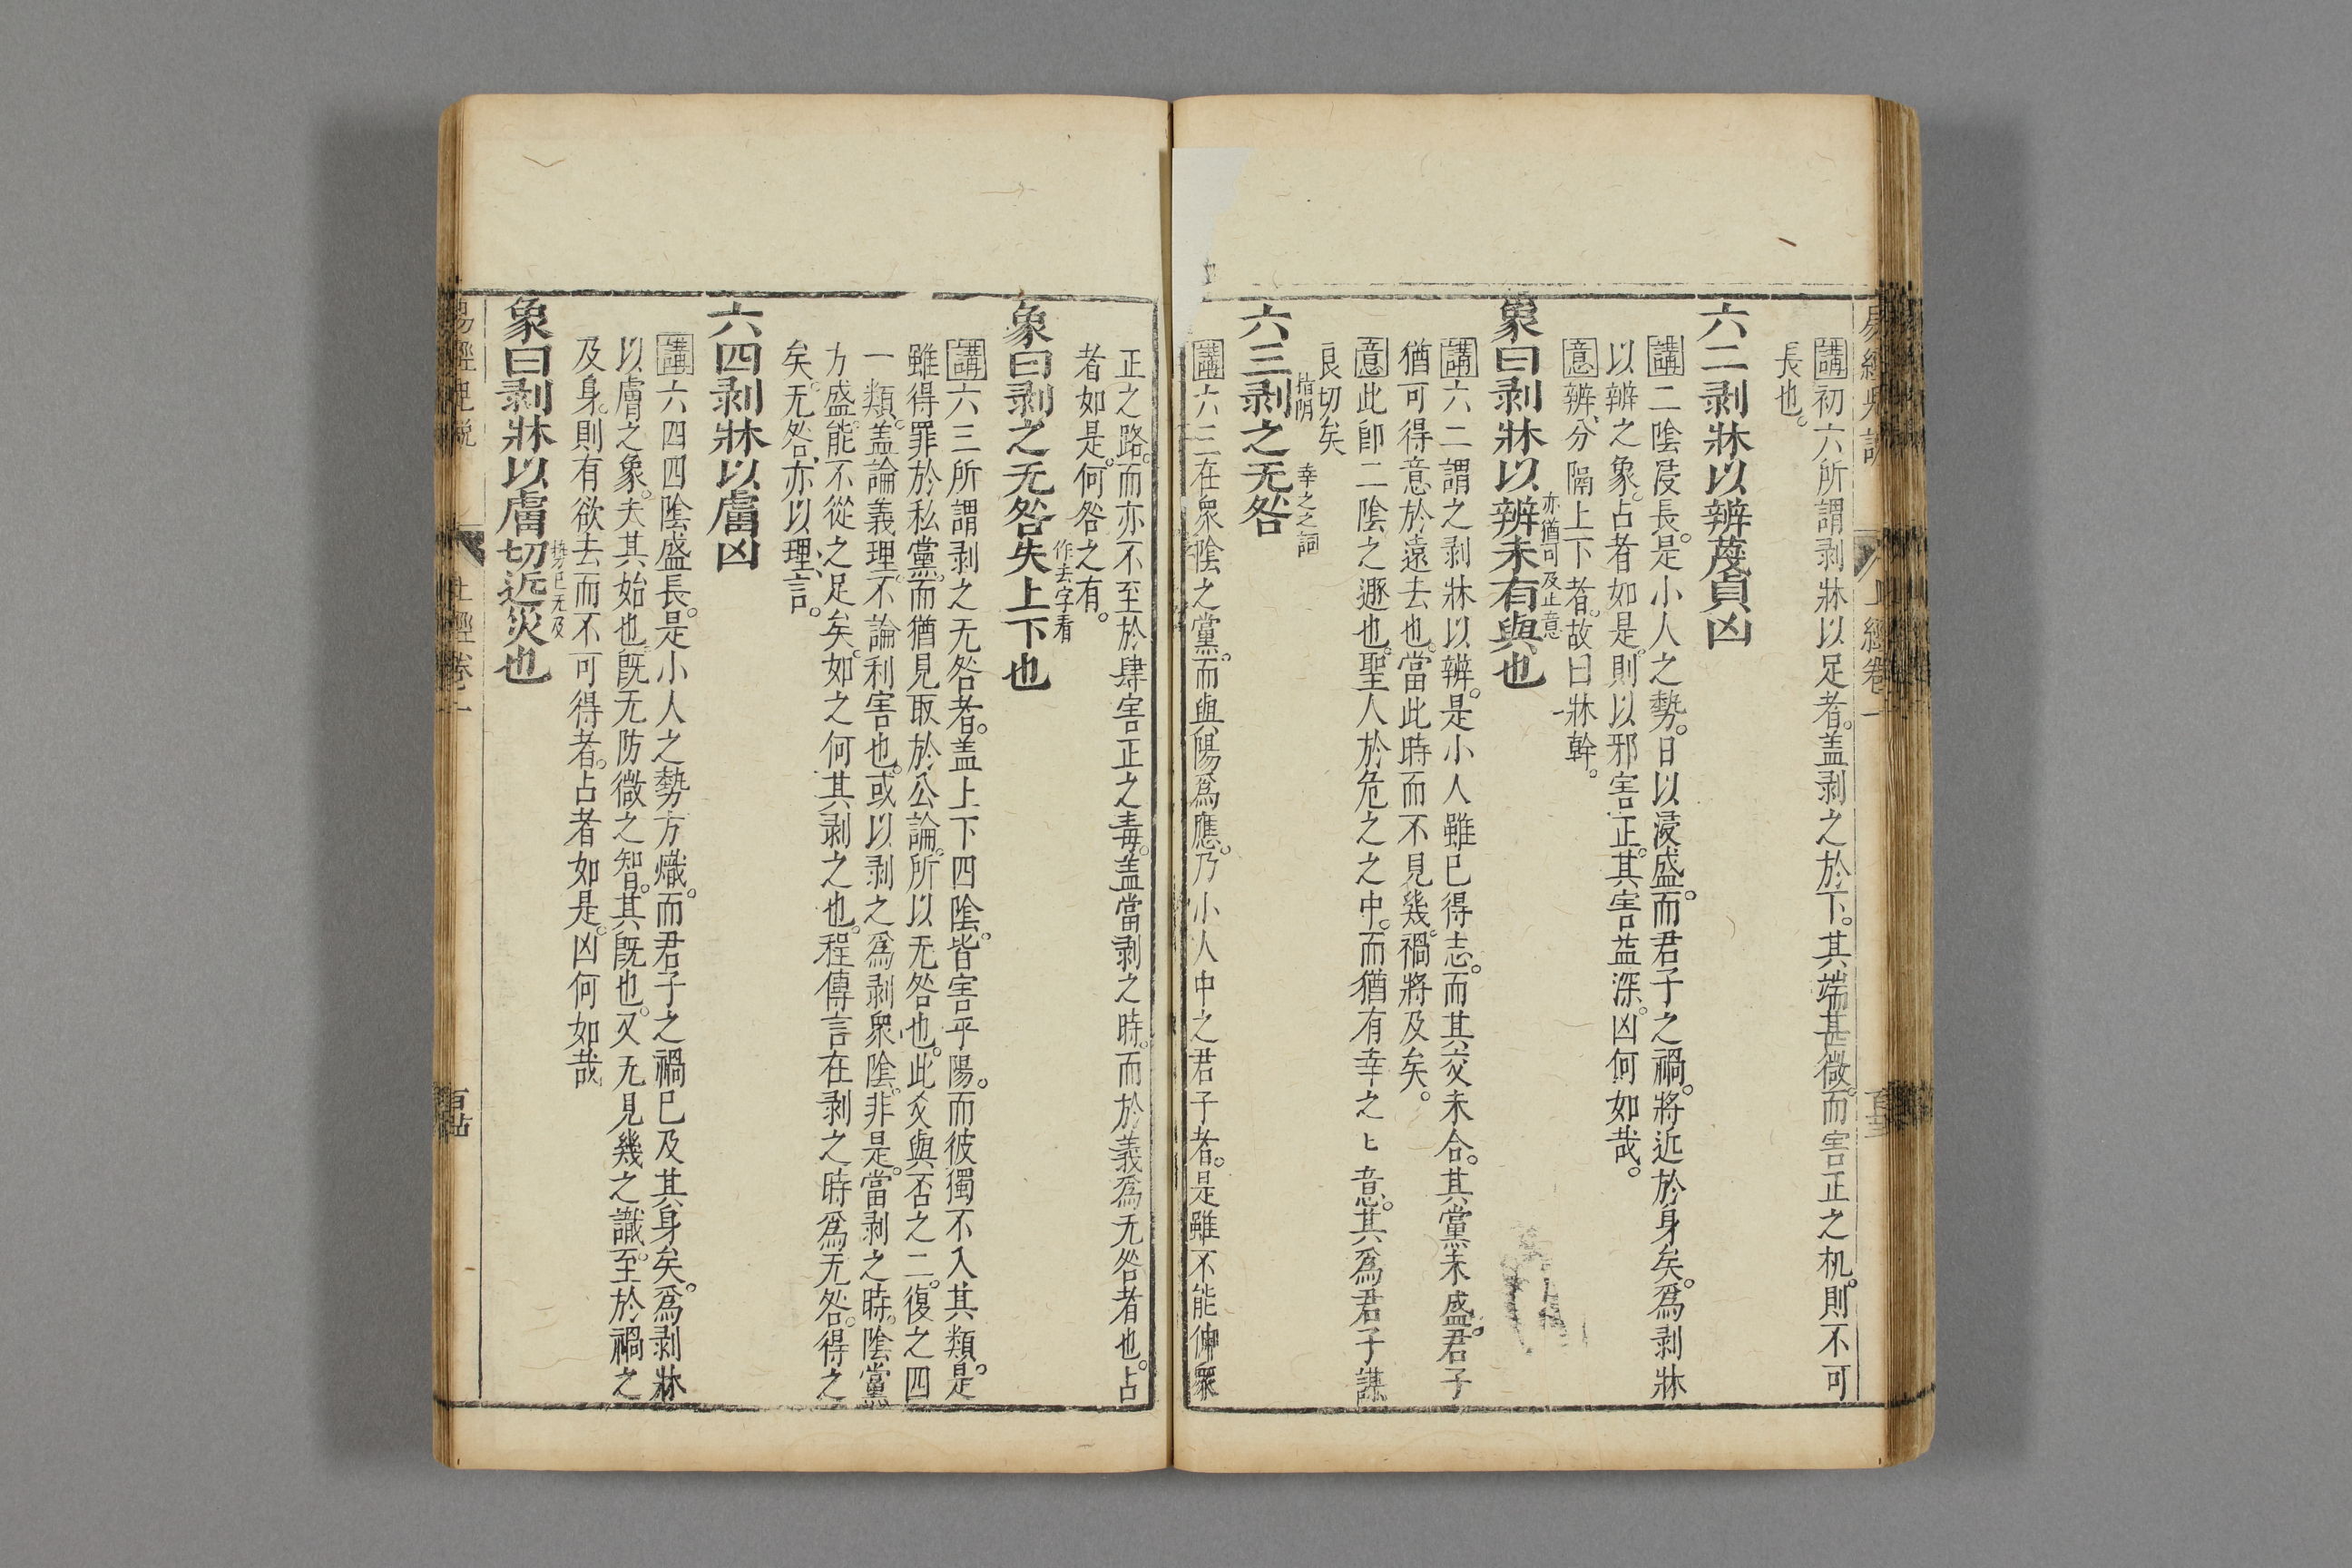 易經兒說 上經卷二
講初六所謂剥牀以足者。盖剥之於下。其端甚微。而害正之机。則不可
長也。
六二剥牀以辨蔑貞凶
講二陰㓎長。是小人之勢。日以浸盛。而君子之禍。將近於身矣。爲剥牀
以辨之象。占者如是。則以邪害正。其害益深。凶何如哉。
意辨、分隔上下者。故曰牀幹。
象曰剥牀以辨未有與也
亦猶可及止意
講六二謂之剥牀以辨。是小人雖已得志。而其交未合。其黨未盛。君子
猶可得意於遠去也。當此時而不見幾。禍將及矣。
意此卽二陰之遯也。聖人於危之之中。而猶有幸之匕意。其爲君子謀
良切矣
六三剥之无咎
指阴 幸之之詞
講六三在衆陰之黨。而與陽爲應。乃小人中之君子者。是雖不能伸衆
正之路。而亦不至於肆害正之毒。盖當剥之時。而於義爲无咎者也。占
者如是。何咎之有。
象曰剥之无咎失上下也
作去字看
講六三所謂剥之无咎者。盖上下四陰。皆害乎陽。而彼獨不入其類。是
雖得罪於私黨。而猶見取於公論。所以无咎也。此爻與否之二。復之四
一類。盖論義理。不論利害也。或以剥之爲剥衆陰。非是。當剥之時。陰黨
方盛。能不從之足矣。如之何其剥之也。程傳言在剥之時爲无咎。得之
矣。无咎、亦以理言。
六四剥牀以膚凶
講六四四陰盛長。是小人之勢方熾。而君子之禍已及其身矣。爲剥牀
以膚之象。夫其始也。旣无防微之智。其旣也。又无見幾之識。至於禍之
及身。則有欲去而不可得者。占者如是。凶何如哉
象曰剥牀以膚切近災也
勢已无及
易經兒說 上經卷二